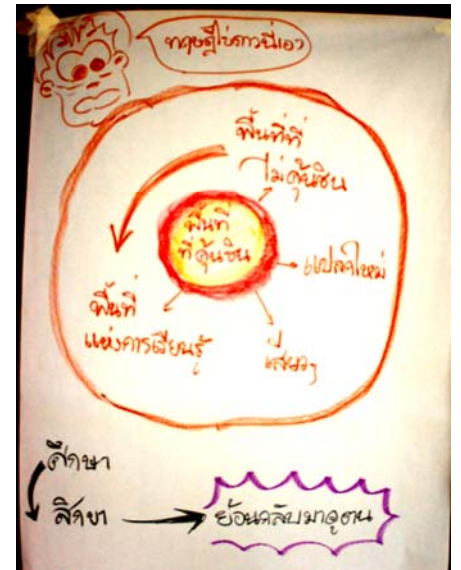 ทฤษฎีไข่ดาวนี่เอง
พื้นที่ที่
ไม่คุ้นชิน
พื้นที่
ที่คุ้นชิน
แปลกใหม่
พื้นที่
แห่งการเรียนรู้
เสี่ยงๆ
ศึกษา
สิกขา
ย้อนกลับมาดูตน